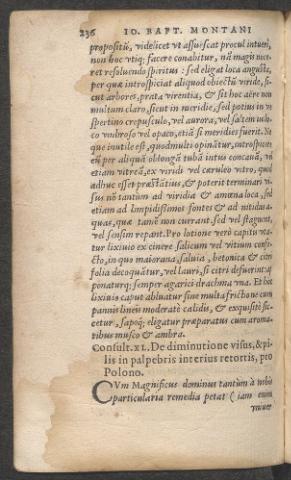 236 IO. BAPT. MONTANI
propositũ, videlicet vt assuescat procul intueri,
non hoc vtiq; facere conabitur, nã magis noce-
ret resoluendo spiritus: sed eligat loca angusta,
per quæ introspiciat aliquod obiectũ viride, si-
cut arbores, prata virentia, & sit hoc aëre non
multum claro, sicut in meridie, sed potius in ve
spertino crepusculo, vel aurora, vel saltem in lo-
co vmbroso vel opaco, etiã si meridies fuerit. Ne
que inutile est, quod multi opinãtur, introspicere
eũ per aliquã oblongã tubã intus concauã, vel
etiam vitreã, ex viridi vel cæruleo vitro, quod
adhuc esset præstãtius, & poterit terminari vi-
sus nõ tantùm ad viridia & amœna loca, sed
etiam ad limpidissimos fontes & ad nitidas a-
quas, quæ tamē non currant, sed vel stagnent,
vel sensim repant. Pro lotione verò capitis vta-
tur lixiuio ex cinere salicum vel vitium confe-
cto, in quo maiorana, saluia, betonica & citri
folia decoquãtur, vel lauri, si citri defuerint: ap
ponaturq; semper agarici drachma vna. Et hoc
lixiuio caput abluatur sine multa frictione cum
pannis lineis moderatè calidis, & exquisitè sic-
cetur, sapoq; eligatur præparatus cum aroma-
tibus musco & ambra.
Consult. XI. De diminutione visus, & pi-
lis in palpebris interius retortis, pro
Polono.
CVm Magnificus dominus tantùm à nobis
particularia remedia petat (iam enim